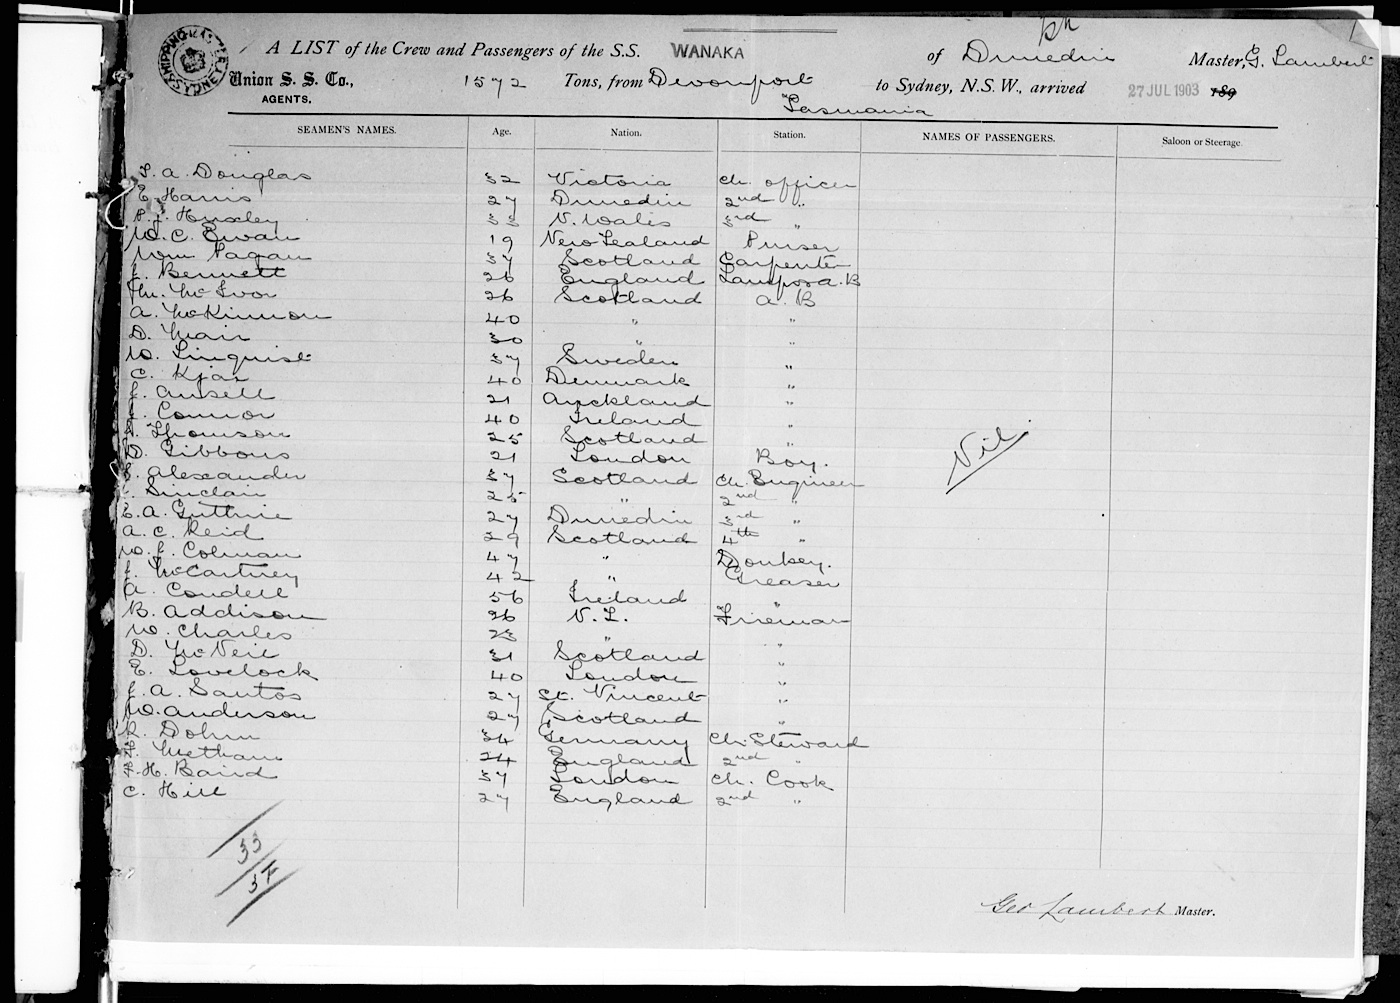 SHIPPING MASTER SYDNEY
A LIST of the Crew and Passengers of the S.S. WANAKA of Dunedin Master, G. Lambert
Union S. S. Co., 1572 Tons, from Devonport to Sydney, N.S.W., arrived 27 JUL 1903 189
AGENTS. Tasmania
SEAMEN'S NAMES. Age. Nation. Station. NAMES OF PASSENGERS. Saloon or Steerage.
A. Douglas 32 Victoria Ch. Officer
E. Harris 27 Dunedin 2nd "
P. J. Huxley 33 N. Wales 3rd "
W. C. Ewan 19 New Zealand Purser
Wm Pagan 37 Scotland Carpenter
J. Bennett 26 England Lamps & A.B
McIvor 26 Scotland A. B
A. McKinnon 40 " "
D. Mair 30 " "
W. Linquist 37 Sweden "
C. Kjar 40 Denmark "
J. Ansell 21 Auckland "
J. Connor 40 Ireland "
Thomson 25 Scotland "
D. Gibbons 21 London Boy.
Alexander 37 Scotland Ch. Engineer
Sinclair 25 " 2nd "
E. A. Guthrie 27 Dunedin 3rd "
A. C. Reid 29 Scotland 4th "
W. J. Colman 47 " Donkey.
J. McCartney 42 " Greaser
A. Condell 56 Ireland "
B. Addison 26 N. Z. Fireman
W. Charles 23 " "
D. McNeil 31 Scotland "
E. Lovelock 40 London "
J. A. Santos 27 St. Vincent "
W. Anderson 27 Scotland "
R. Dohrn 34 Germany Ch. Steward
Metham 24 England 2nd "
F. H. Baird 37 London Ch. Cook
C. Hill 27 England 2nd "
Nil.
33
Geo Lambert Master.